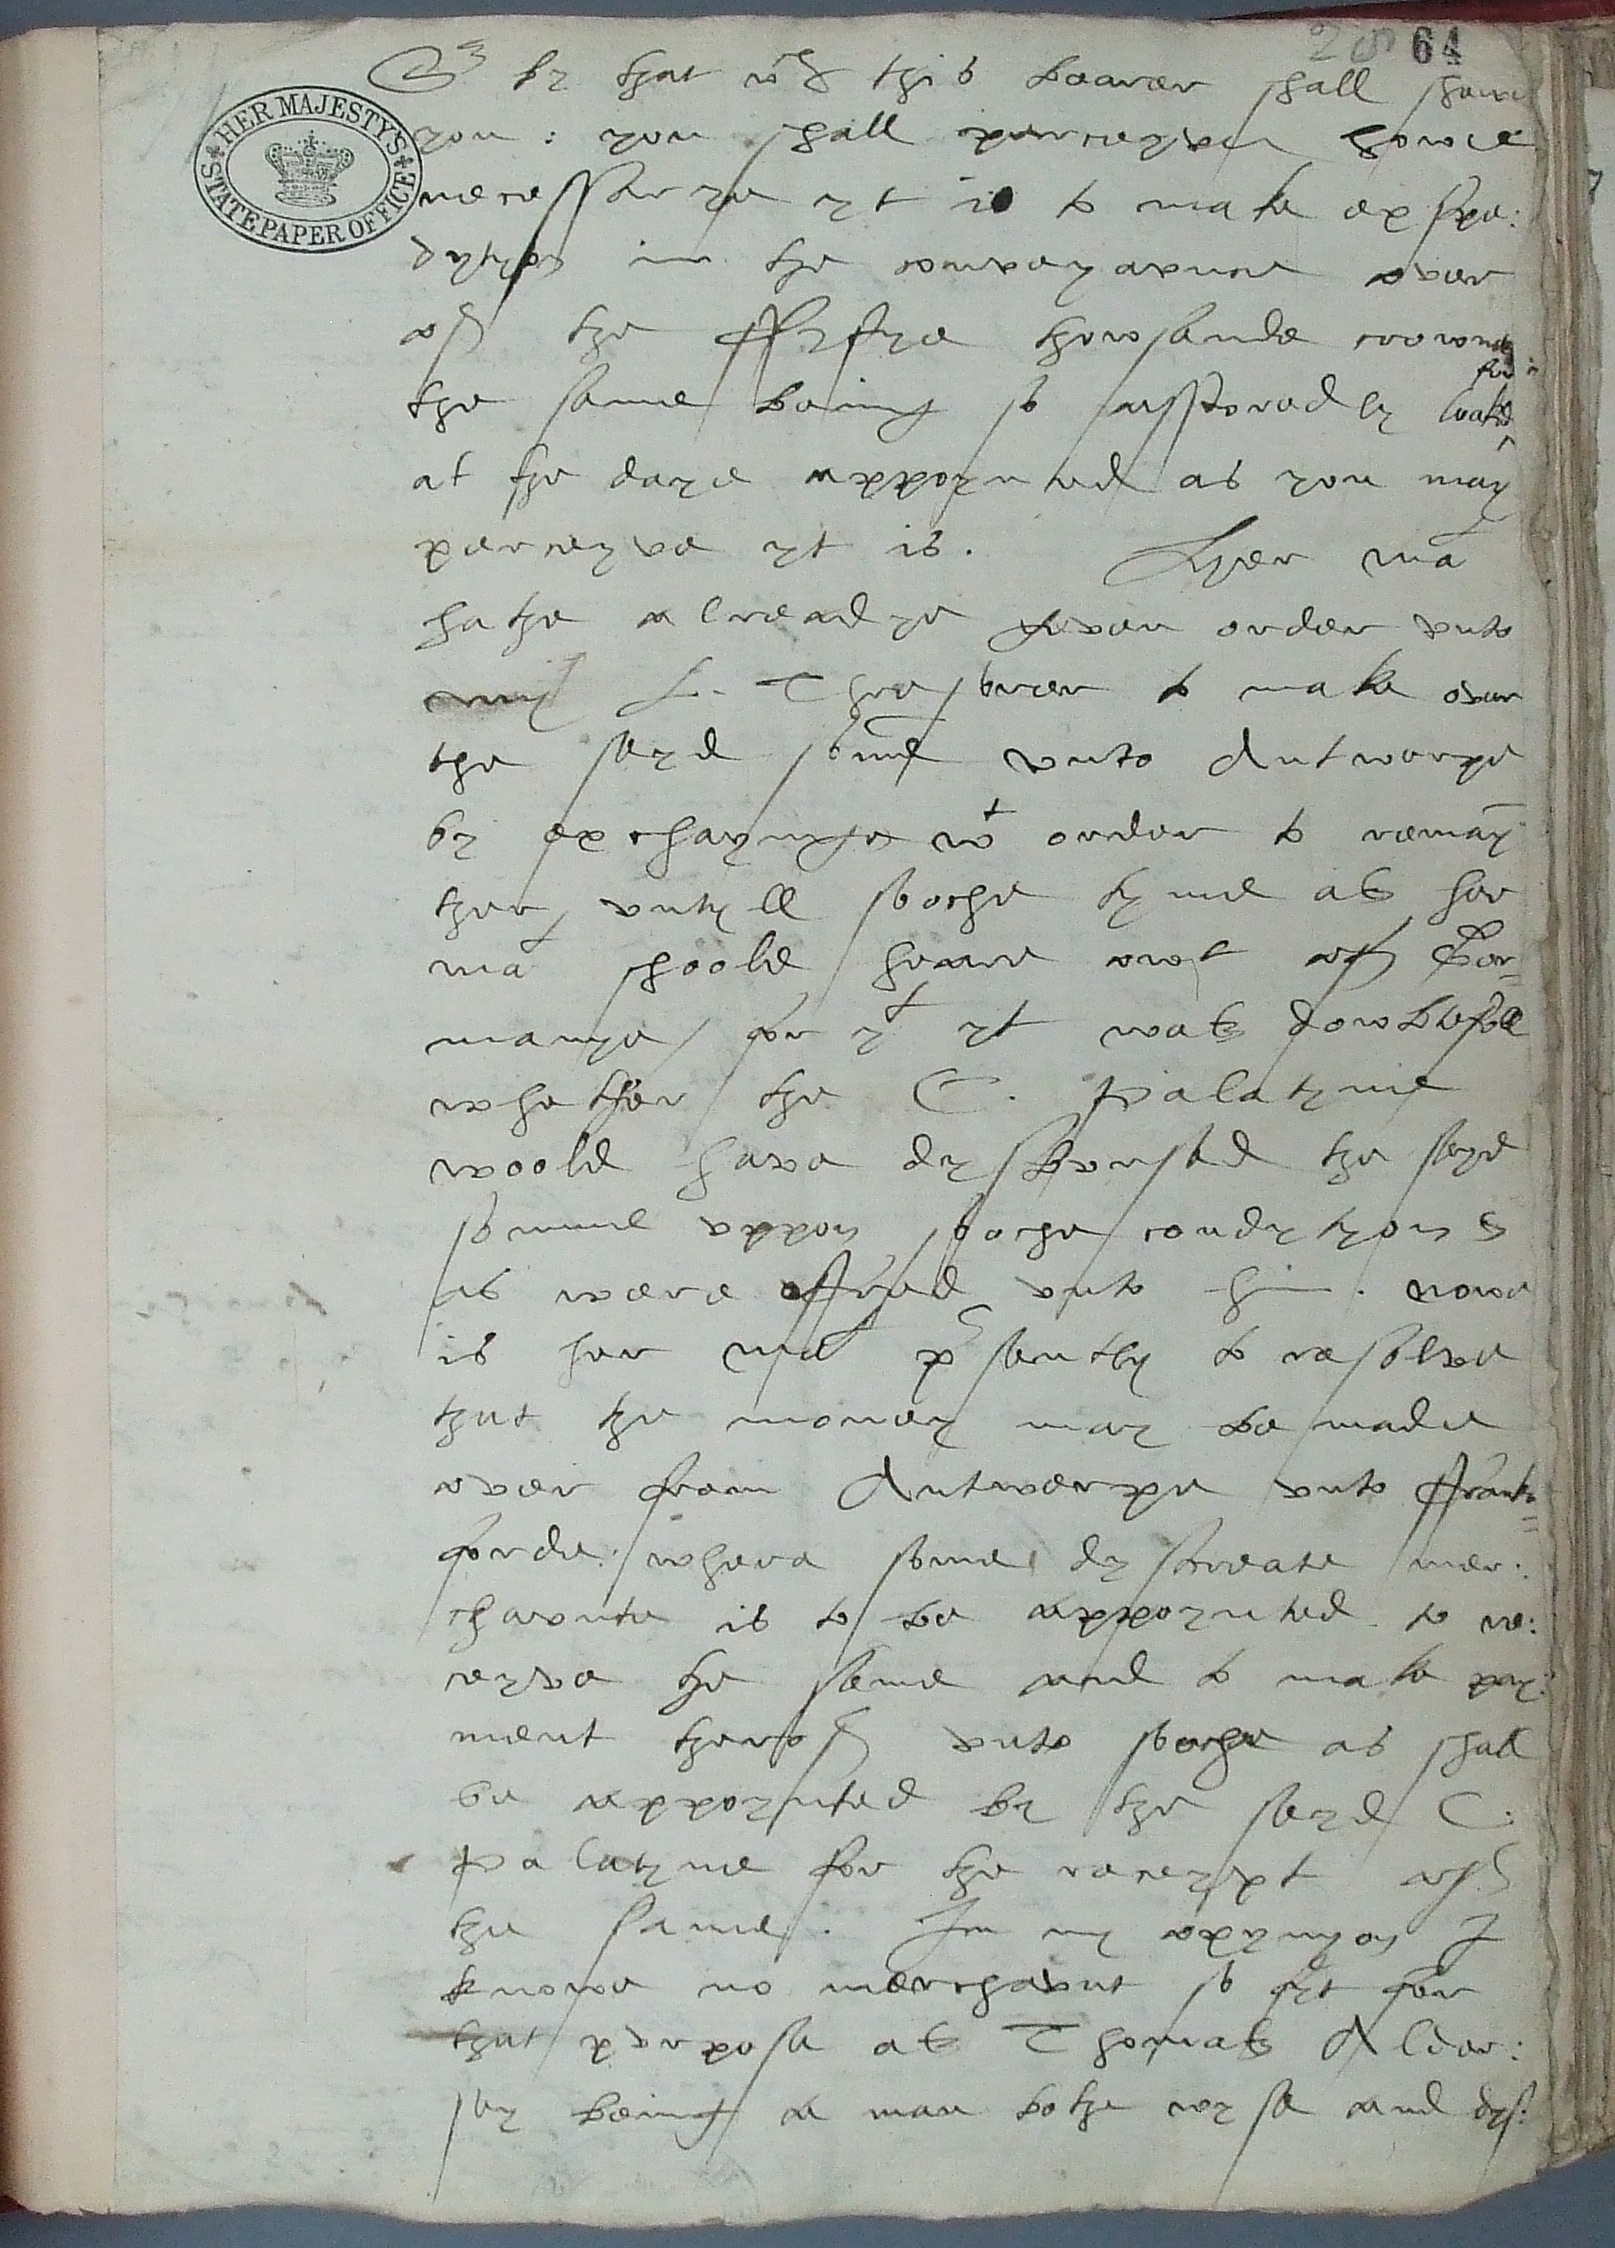 28 64
HER MAJESTY'S STATE PAPER OFFICE
Sr by that wch this bearer shall shewe
you : you shall perceyve howe
necessarye yt is to make expe:
dytyon in the conveyaunce over
of the fyftye thowsande crownes
the same being so assuredly looked for
at the daye appoynted as you may
perceyve yt is. Hyer mat
hathe alreadye geven order unto
my L. Threasurer to make over
the seyd somme unto Antwerpe
by exchaynge wt order to remayn
ther untyll soche tyme as her
mat shoold heare owt of Ger=
manye, for yt yt was dowbtefull
whether the C. Palatyne
woold have dysbursed the seyd
somme uppon soche condytyons
as were offred unto him. nowe
is her mat presently to resolve
that the money may be made
over from Antwerpe unto Franke=
forde: where some dyscreate mer:
chaunte is to be appoynted to re:
ceyve the same and to make pay:
ment therof unto soche as shall
be appoynted by the seyd C.
Palatyne for the receypt of
the same. In my opynyon I
knowe no merchaunt so fyt for
that purpose as Thomas Alder:
sey being a man bothe wyse and dys: